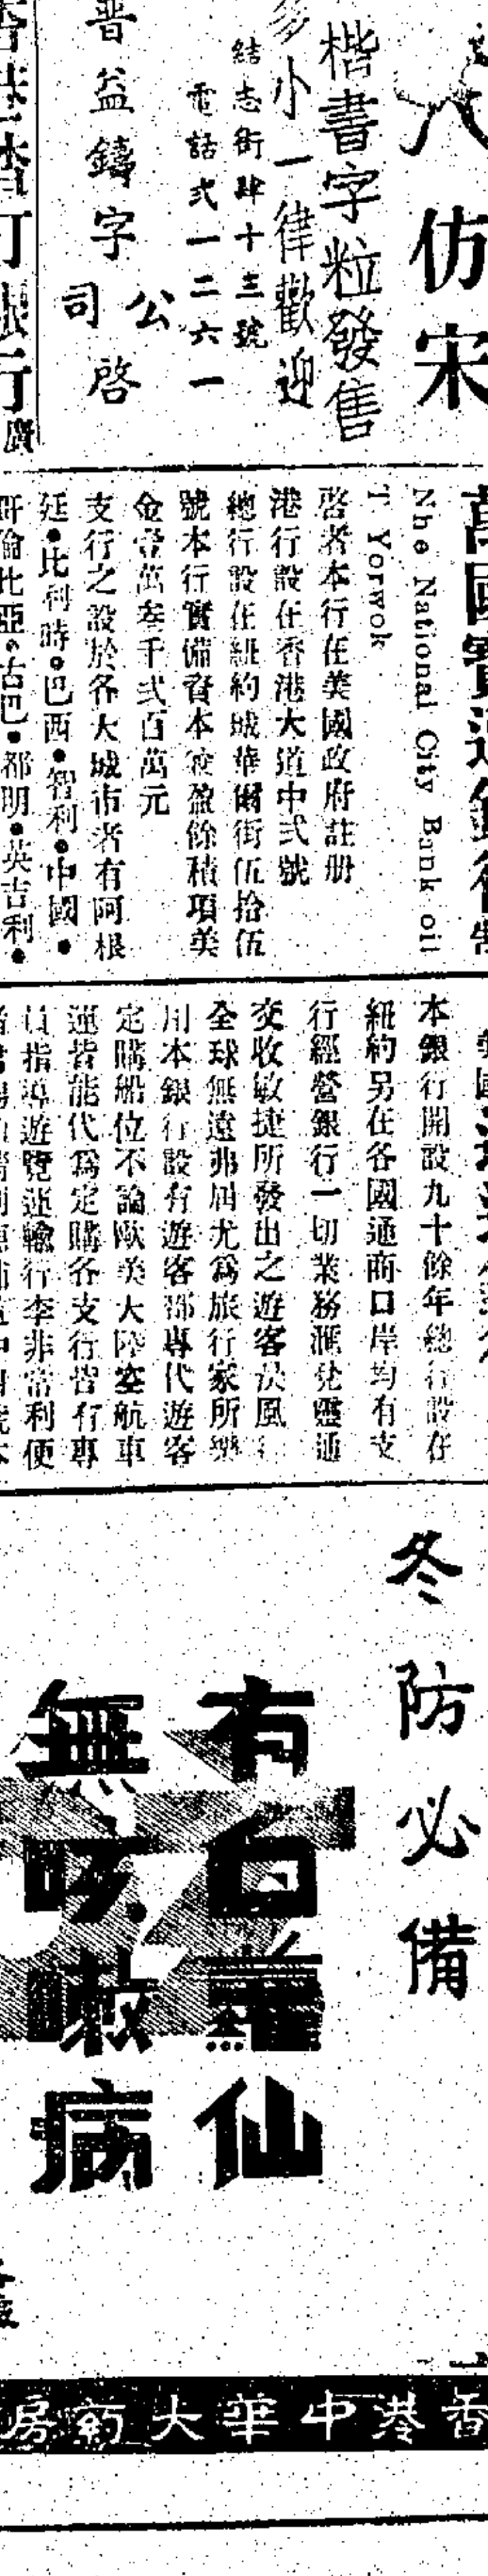 八仿宋
楷書字粒發售
多小一律歡迎
結志街肆十三號
電話弍一二六一
普益鑄字公司啓
萬國寳通銀行
Nhe National City Bank oil
T Yorwok
啓者本行在美國政府註册
港行設在香港大道中弍號
總行設在紐約城華爾街伍拾伍
號本行實備資本並盈餘積項美
金壹萬叁千弍百萬元
支行之設於各大城市者有阿根
廷●比利時●巴西●智利●中國●
哥倫比亞●古巴●都明●英吉利●
本銀行開設九十餘年總行設在
紐約另在各國通商口岸均有支
行經營銀行一切業務滙兌靈通
交收敏捷所發出之遊客
全球無遠弗屆尤爲旅行家所樂
用本銀行設有遊客部專代遊客
定購船位不論歐美大陸空航車
運皆能代爲定購各支行皆有專
員指導遊覽運輸行李非常利便
冬防必備
有白羅仙
無咳嗽病
香港中華大药房